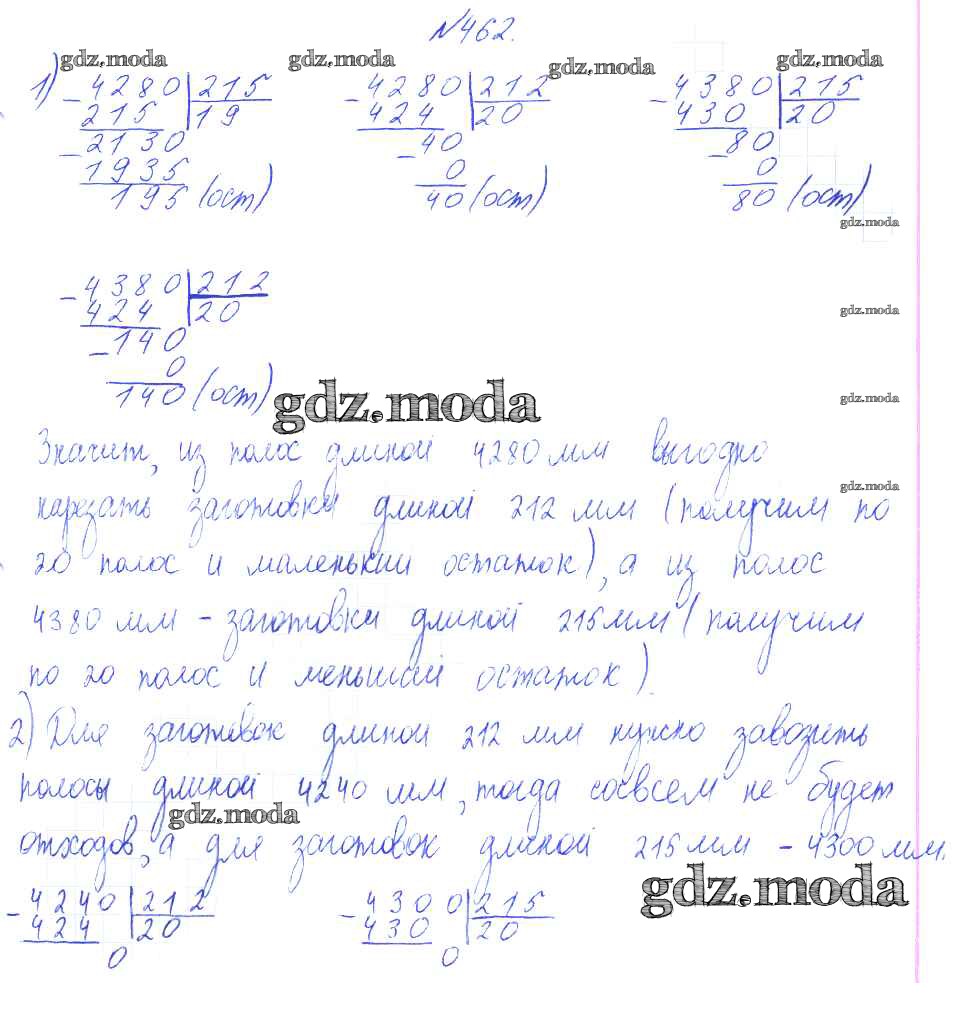 №462.
gdz.moda gdz.moda gdz.moda gdz.moda
1) - 4280 | 215 - 4280 | 212 - 4380 | 215
215 | 19 424 | 20 430 | 20
- 2130 - 40 - 80
1935 0 0
195 (ост) 40 (ост) 80 (ост)
gdz.moda
- 4380 | 212
424 | 20 gdz.moda
- 140
0
140 (ост) gdz.moda gdz.moda
Значит, из полос длиной 4280 мм выгодно
gdz.moda
нарезать заготовки длиной 212 мм (получим по
20 полос и маленький остаток), а из полос
4380 мм - заготовки длиной 215 мм (получим
по 20 полос и меньший остаток).
2) Для заготовок длиной 212 мм нужно завозить
полосы длиной 4240 мм, тогда совсем не будет
gdz.moda
отходов, а для заготовок длиной 215 мм - 4300 мм.
gdz.moda
- 4240 | 212 - 4300 | 215
424 | 20 430 | 20
0 0